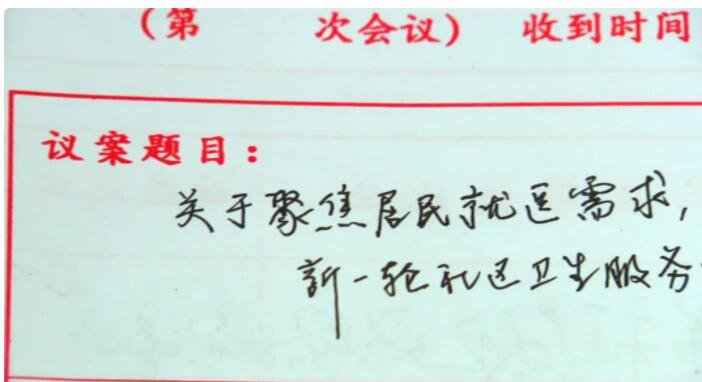 (第 次会议) 收到时间
议案题目：
关于聚焦居民就医需求，
新一轮社区卫生服务